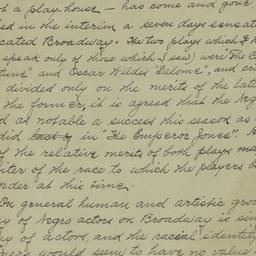 of a play-house — has come and gone
ed in the interim a seven days sensat
cated Broadway. The two plays which I
speak only of those which I saw) were "The C
tune" and Oscar Wildes "Salome", and cri
divided only on the merits of the latt
the former, it is agreed that the Neg
d at notable a success this season as
did last in "The Emperor Jones".
of the relative merits of both plays
iter of the race to which the players b
nder at this time.
On general human and artistic grou
y of Negro actors on Broadway is sim
y of actors, and the racial identity
would seem to have no value